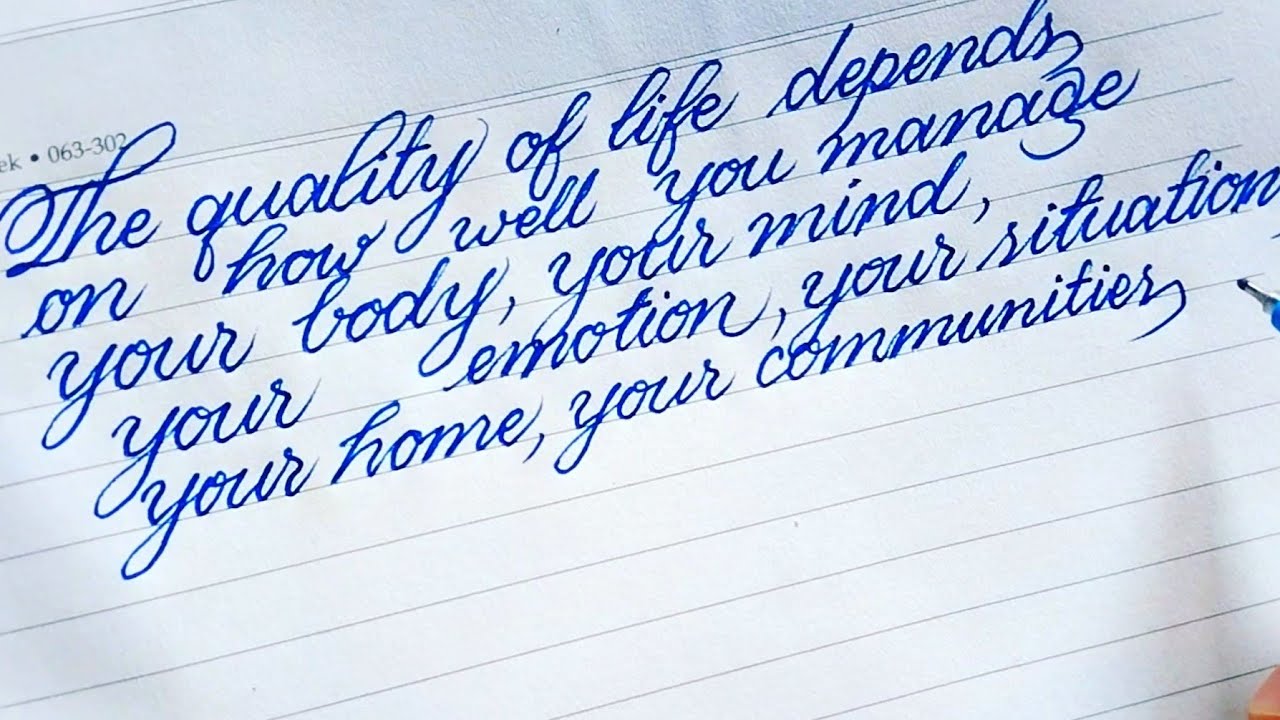 ek • 063-302
The quality of life depends
on how well you manage
your body, your mind,
your emotion, your situation
your home, your communities